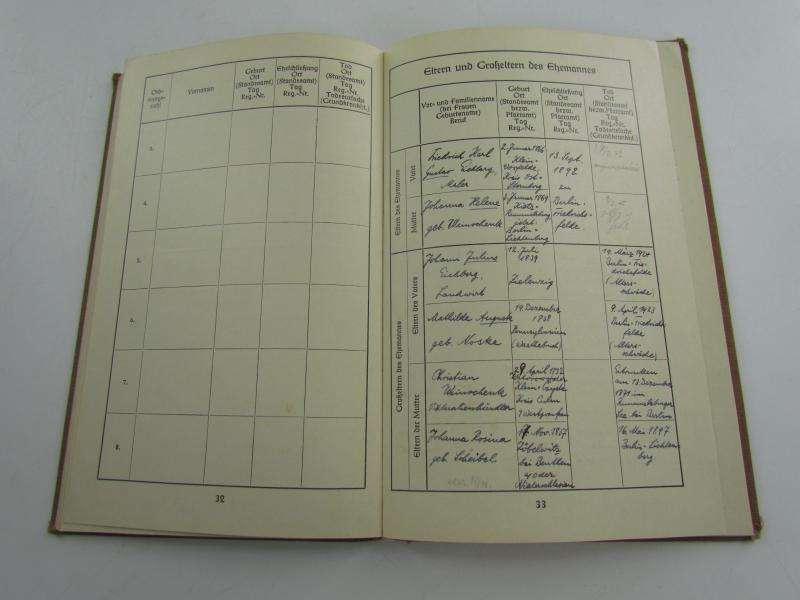 Ord-
nungs-
zahl
Vornamen
Geburt
Ort
(Standesamt)
Tag
Reg.-Nr.
Eheschließung
Ort
(Standesamt)
Tag
Reg.-Nr.
Tod
Ort
(Standesamt)
Tag
Reg.-Nr.
Todesursache
(Grundkrankht.)
3.
4.
5.
6.
7.
8.
32
Eltern und Großeltern des Ehemannes
Vor- und Familienname
(bei Frauen
Geburtsname)
Beruf
Geburt
Ort
(Standesamt
bezw.
Pfarramt)
Tag
Reg.-Nr.
Eheschließung
Ort
(Standesamt
bezw.
Pfarramt)
Tag
Reg.-Nr.
Tod
Ort
(Standesamt
bezw. Pfarramt)
Tag
Reg.-Nr.
Todesursache
(Grundkrankht.)
Eltern des Ehemannes
Vater
Friedrich Karl
Gustav Eichberg,
Maler
2. Januar
Klein-
Kreis Ost-
Sternberg
13. Sept.
1892
zu
Mutter
Johanna Helene
geb. Weinschenk
Januar 1869
Kietz-
Rummelsburg
jetzt
Berlin-
Lichtenberg
Berlin-
Friedrichs-
felde.
Großeltern des Ehemannes
Eltern des Vaters
Johann Julius
Eichberg,
Landwirt
12. Juli
1839
Zielenzig
19. März 1924
Berlin-Frie-
drichsfelde
(Alters-
schwäche)
Mathilde Auguste
geb. Noske
14. Dezember
1838
Pennsylvanien
9. April 1923
Berlin-Friedrichs-
felde
(Alters-
schwäche)
Eltern der Mutter
Christian
Weinschenk
April
Klein-
Kreis Culm
Westpreußen
Ertrunken
am 13. Dezember
1871 im
Rummelsburger
See bei Berlin
Johanna Rosina
geb. Scheibel.
Nov. 1837
bei Beuthen
a/oder
Niederschlesien
16. Mai 1897
Berlin-Lichten-
berg
33